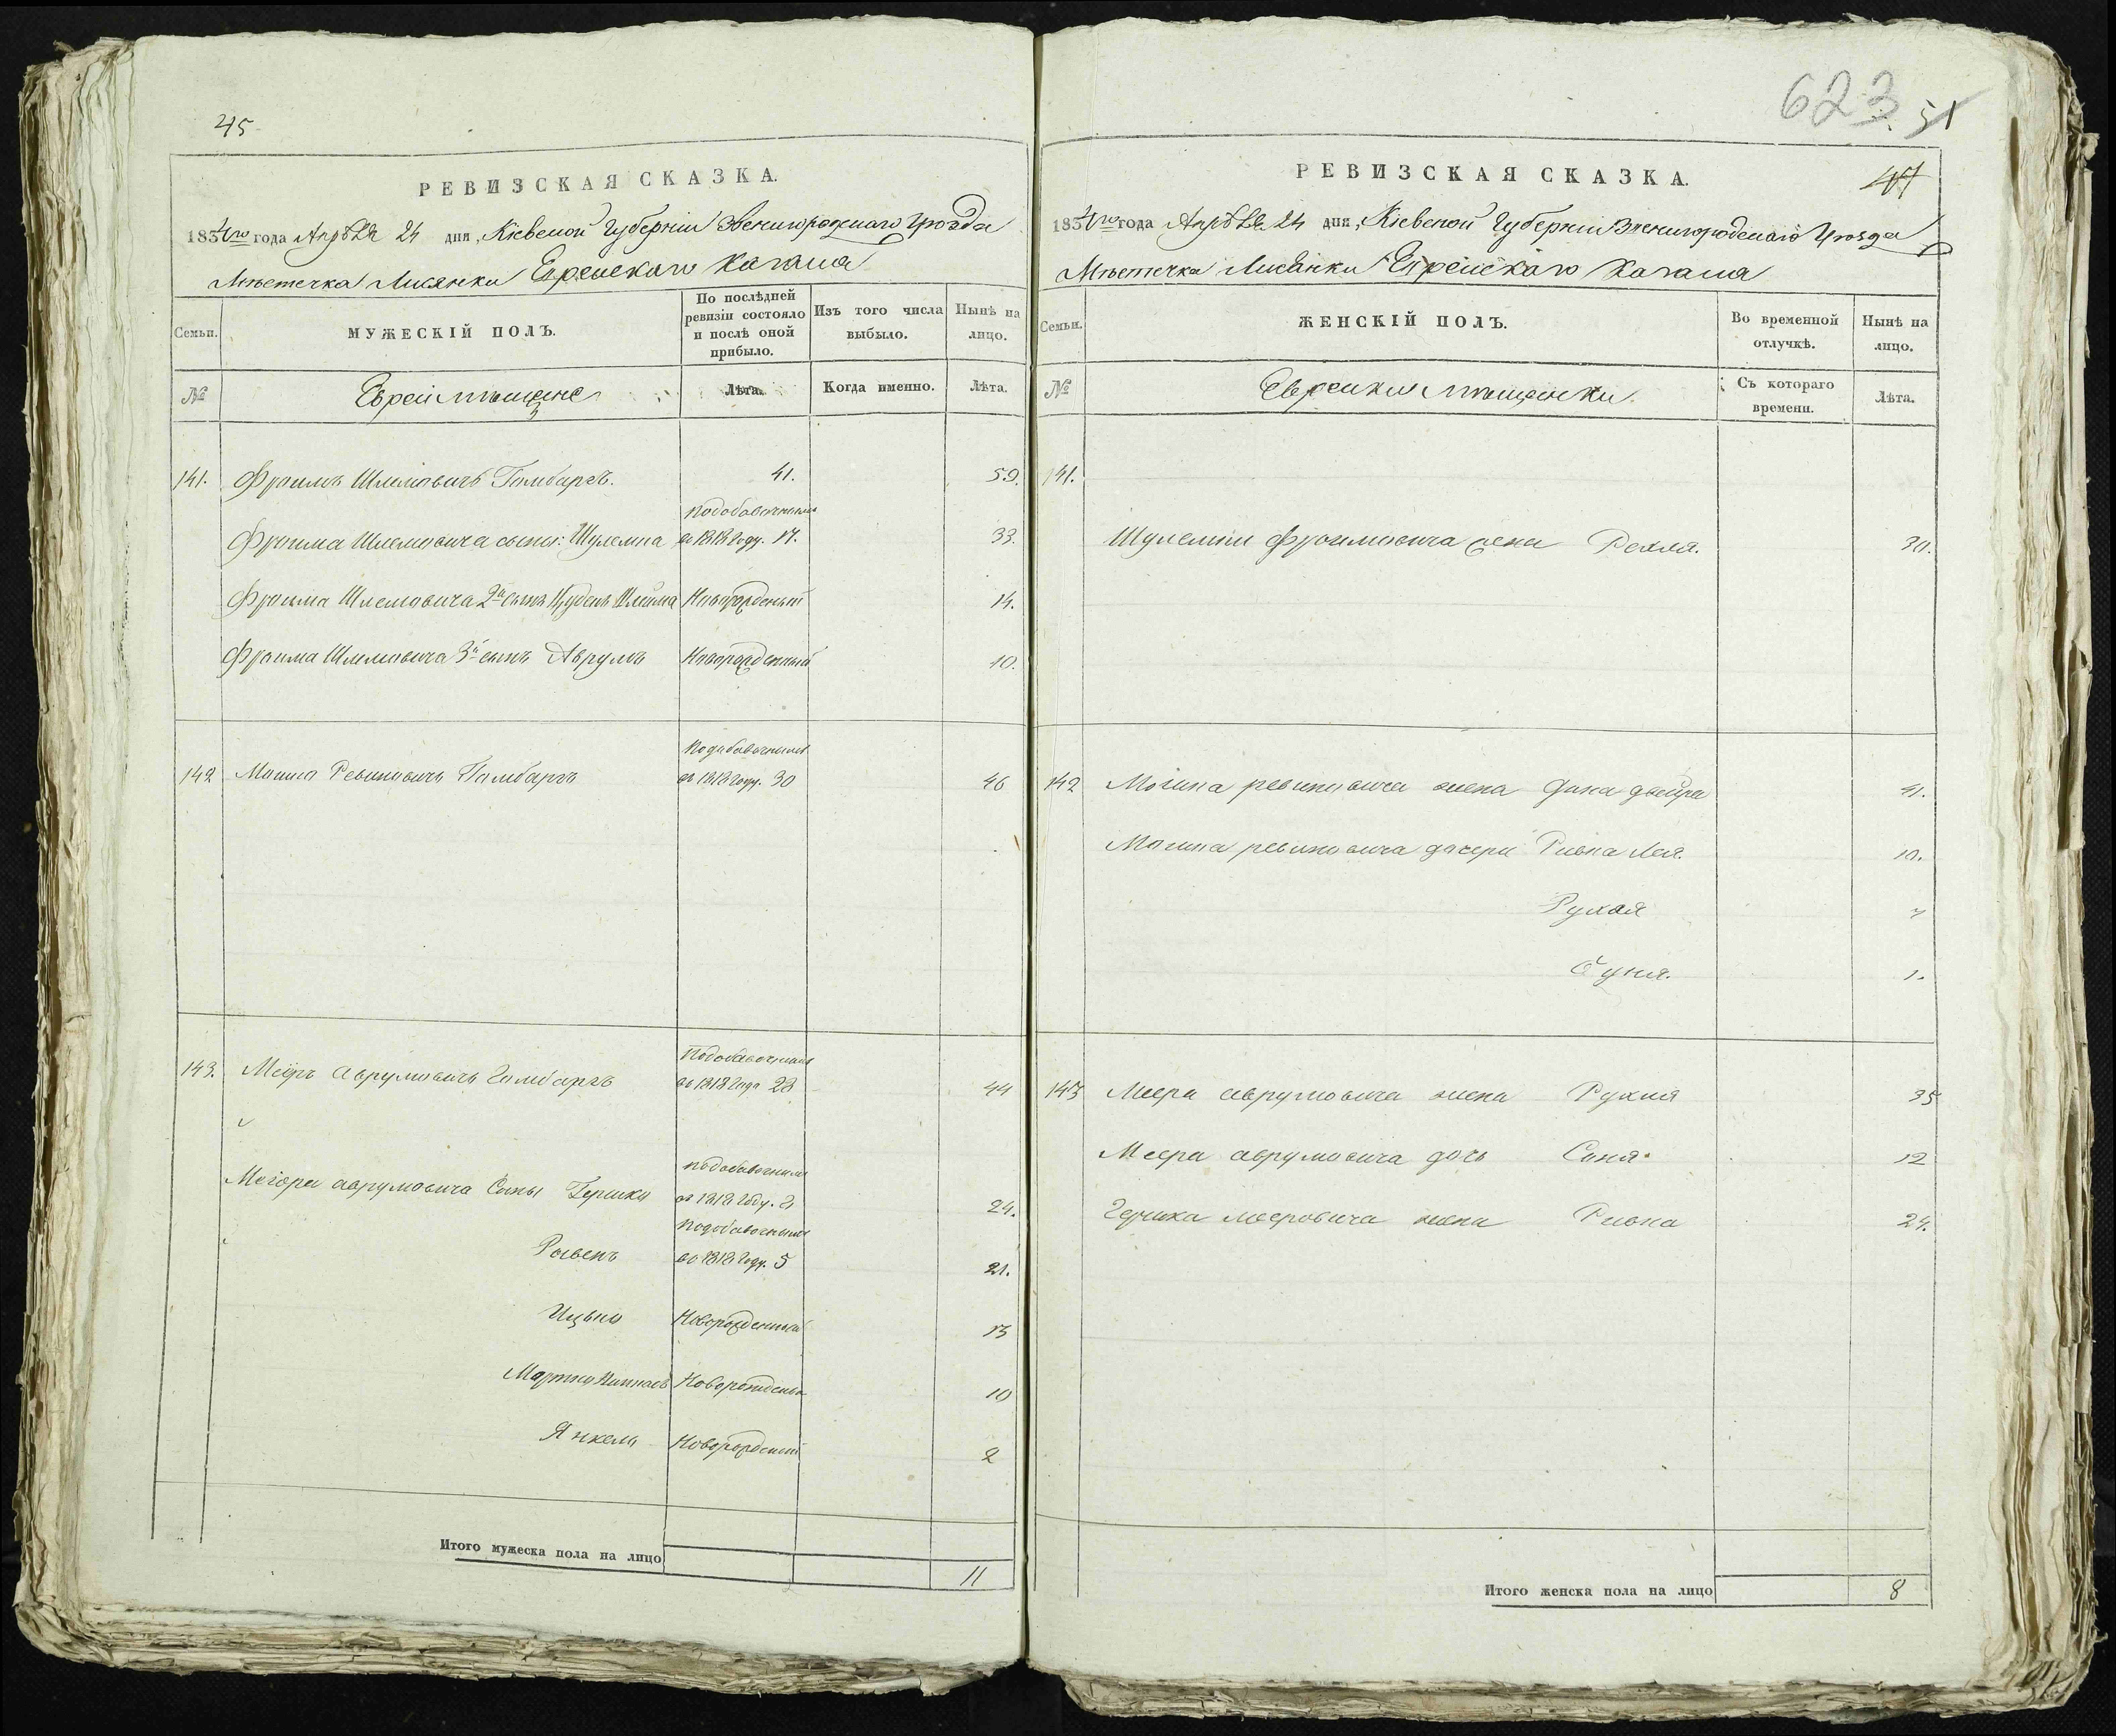 45
РЕВИЗСКАЯ СКАЗКА.
1834го года Апрѣля 24 дня, Кіевской Губерніи Звенигородскаго Уѣзда
Мѣстечка Лисянки Еврейскаго Кагала
Семьи.
МУЖЕСКІЙ ПОЛЪ.
По послѣдней ревизіи состояло и послѣ оной прибыло.
Изъ того числа выбыло.
Нынѣ на лицо.
№
Евреи мѣщане
Лѣта.
Когда именно.
Лѣта.
141. Фроимъ Шлемовичъ Гамбаргъ. 41. 59.
Подобавочнымъ
Фроима Шлемовича сыны: Шулемка въ 1818 году. 17. 33.
Фроима Шлемовича 2й сынъ Шлёма Новорожденый 14.
Фроима Шлемовича 3й сынъ Аврумъ Новорожденный 10.
Подобавочнымъ
142 Мошко Ревиновичъ Гамбаргъ въ 1818 году. 30 46
Подобавочнымъ
143. Меіоръ Аврумовичъ Гамбаргъ въ 1818 года 28 44
Подобавочнымъ
Меіора Аврумовича Сыны Гершко въ 1818 году. 24.
Подобавочнымъ
Рывенъ въ 1818 году. 5 21.
Ицько Новорожденный 13
Новорожденъ 10
Янкель Новорожденый 2
Итого мужеска пола на лицо
11
623
51
47
РЕВИЗСКАЯ СКАЗКА.
1834го года Апрѣля 24 дня, Кіевской Губерніи Звенигородскаго Уѣзда
Мѣстечка Лисянки Еврейскаго Кагала
Семьи.
ЖЕНСКІЙ ПОЛЪ.
Во временной отлучкѣ.
Нынѣ на лицо.
№
Еврейки мѣщанки
Съ котораго времени.
Лѣта.
141.
Шулемки Фроимовича жена Рехля. 30.
142 Мошка ревиновича жена двейра 41.
Мошка ревиновича дочери Ривка Лея. 10.
Рухля 7
1.
143 Меера аврумовича жена Рухля 35
Меера аврумовича дочь Соня. 12
Гершка мееровича жена Ривка 24.
Итого женска пола на лицо
8